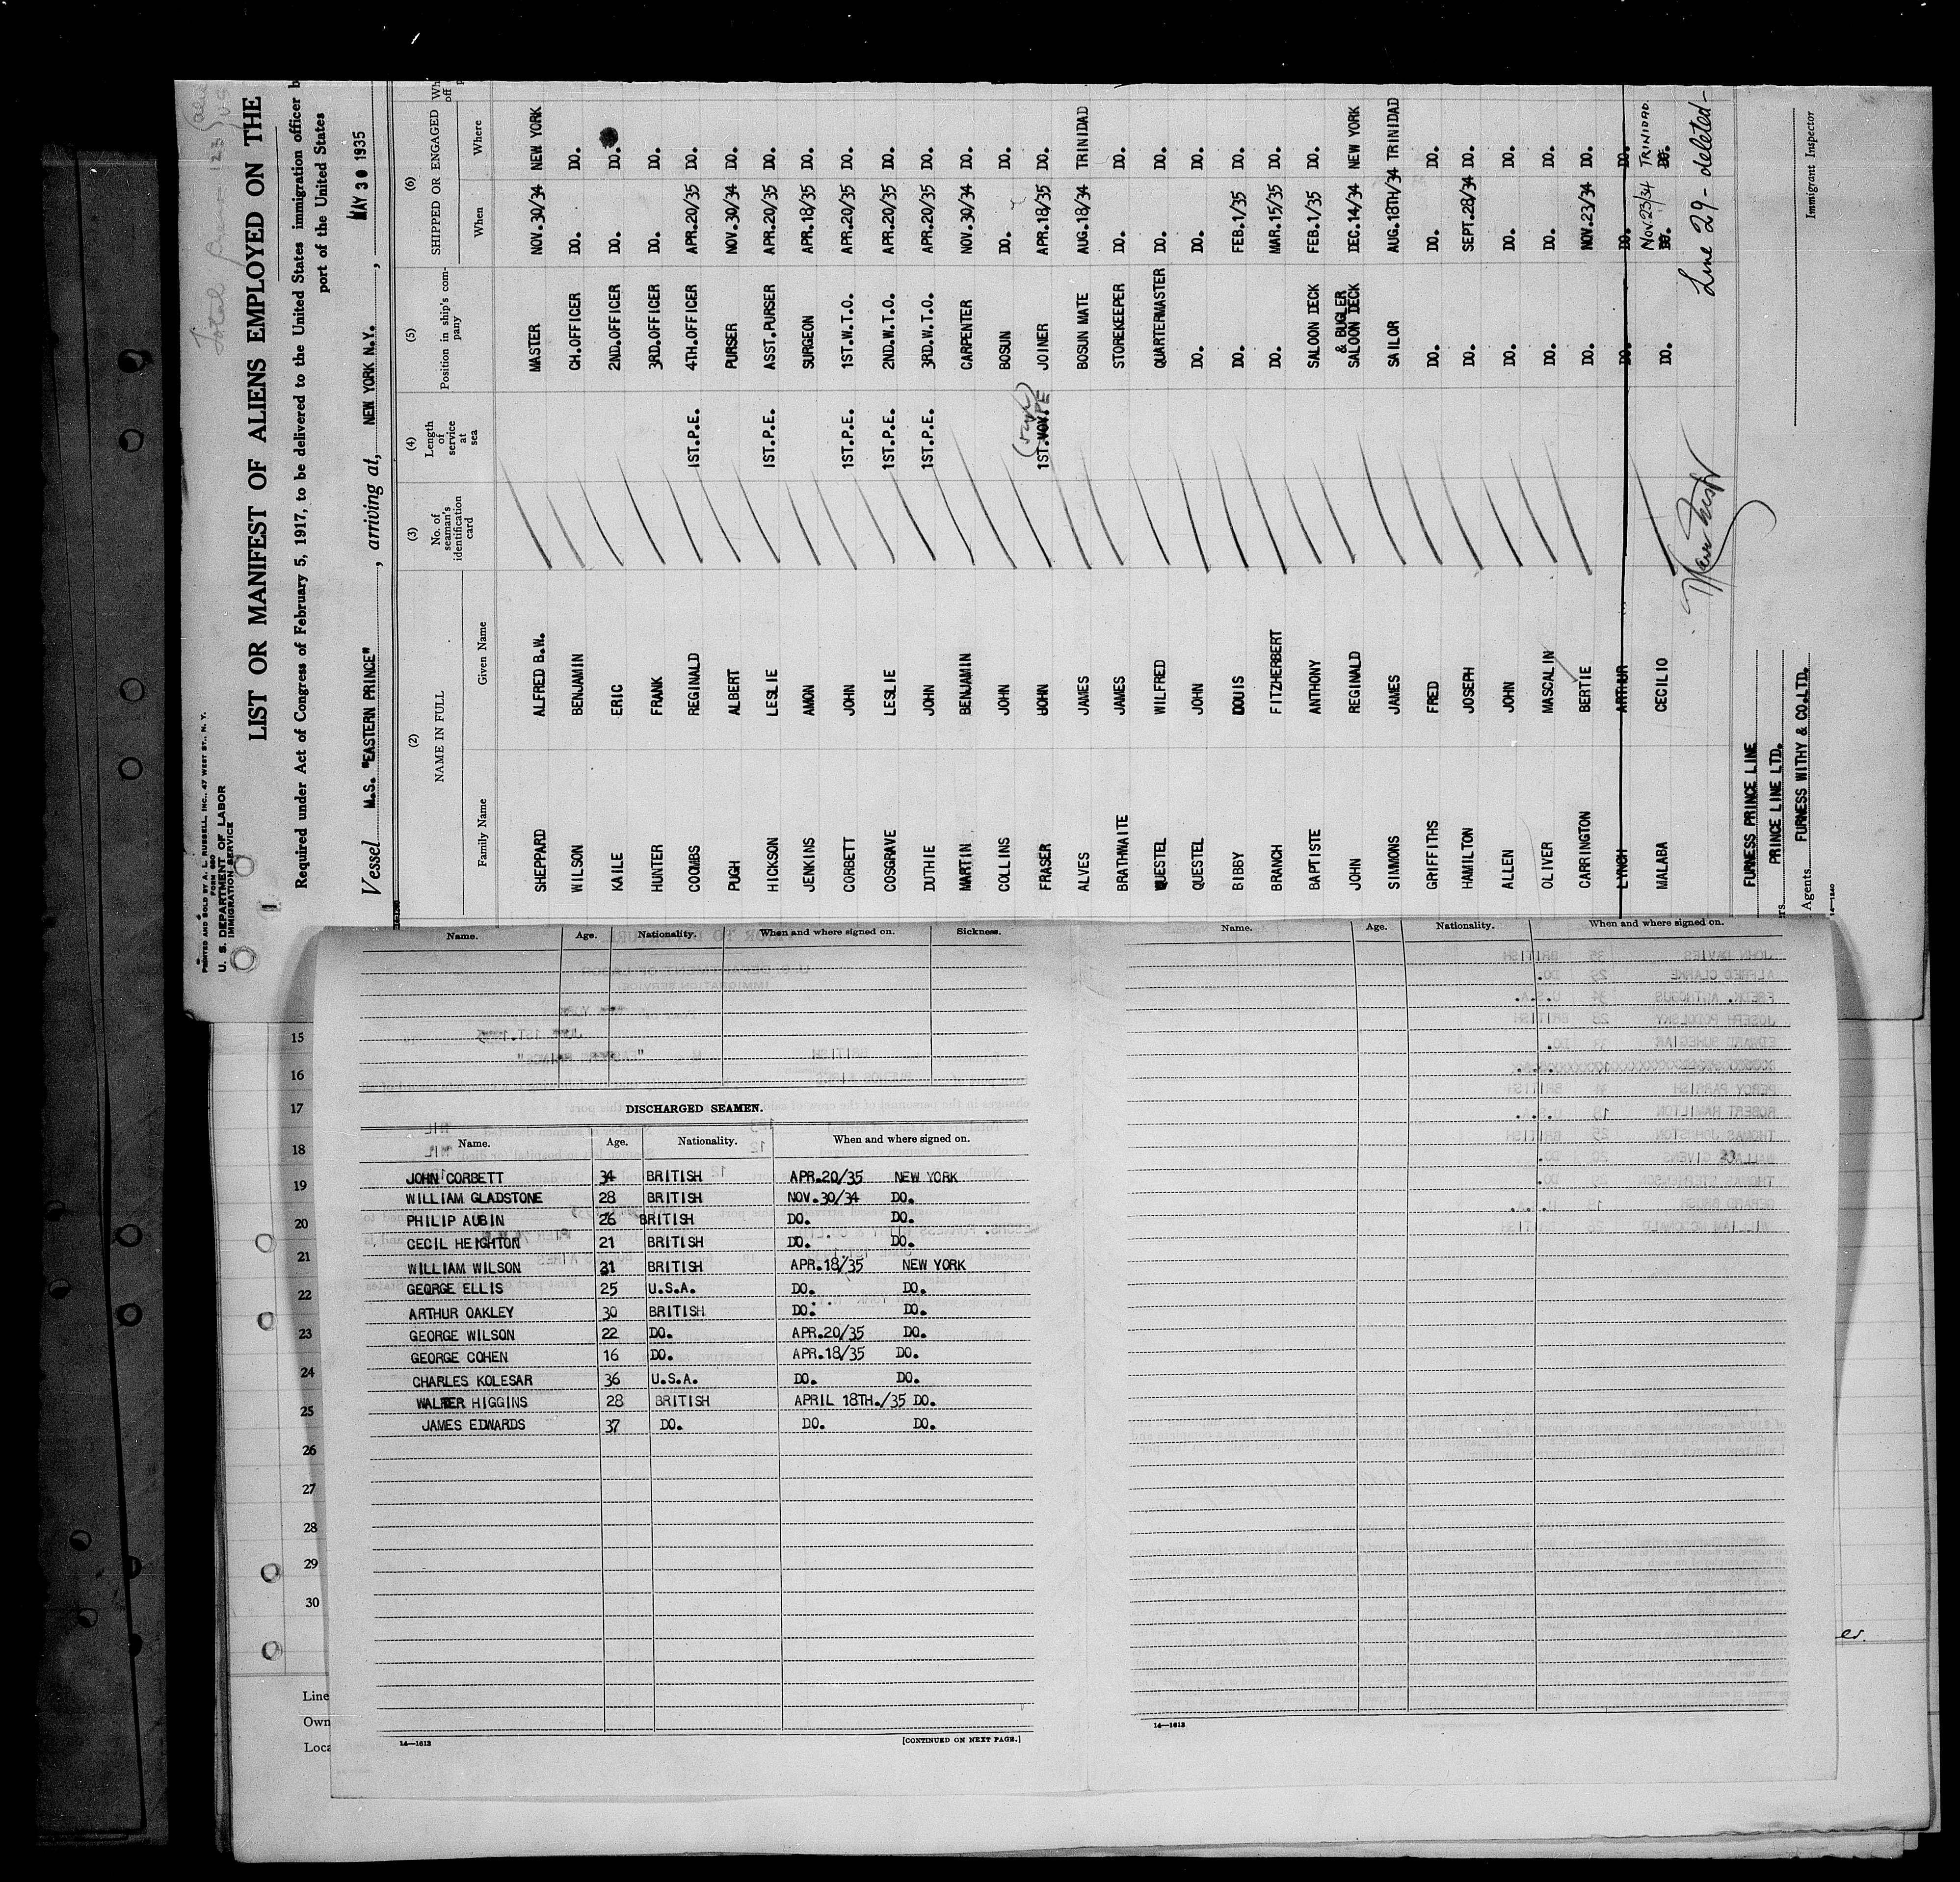 PRINTED AND SOLD BY A. L. RUSSELL, INC., 47 WEST ST., N. Y.
FORM 680
U. S. DEPARTMENT OF LABOR
IMMIGRATION SERVICE
Total Crew - 123
LIST OR MANIFEST OF ALIENS EMPLOYED ON THE
Required under Act of Congress of February 5, 1917, to be delivered to the United States immigration officer b
port of the United States
Vessel M.S. "EASTERN PRINCE", arriving at, NEW YORK N.Y., MAY 30 1935
(2) (3) (4) (5) (6)
NAME IN FULL No. of seaman's identification card Length of service at sea Position in ship's company SHIPPED OR ENGAGED
Family Name Given Name When Where
SHEPPARD ALFRED B.W. MASTER NOV.30/34 NEW YORK
WILSON BENJAMIN CH.OFFICER DO. DO.
KAILE ERIC 2ND.OFFICER DO. DO.
HUNTER FRANK 3RD.OFFICER DO. DO.
COOMBS REGINALD 1ST.P.E. 4TH.OFFICER APR.20/35 DO.
PUGH ALBERT PURSER NOV.30/34 DO.
HICKSON LESLIE 1ST.P.E. ASST.PURSER APR.20/35 DO.
JENKINS AMON SURGEON APR.18/35 DO.
CORBETT JOHN 1ST.P.E. 1ST.W.T.O. APR.20/35 DO.
COSGRAVE LESLIE 1ST.P.E. 2ND.W.T.O. APR.20/35 DO.
DUTHIE JOHN 1ST.P.E. 3RD.W.T.O. APR.20/35 DO.
MARTIN BENJAMIN CARPENTER NOV.30/34 DO.
COLLINS JOHN BOSUN DO. DO.
FRASER JOHN 1ST. JOINER APR.18/35 DO.
ALVES JAMES BOSUN MATE AUG.18/34 TRINIDAD
BRATHWAITE JAMES STOREKEEPER DO. DO.
QUESTEL WILFRED QUARTERMASTER DO. DO.
QUESTEL JOHN DO. DO. DO.
BIBBY LOUIS DO. FEB.1/35 DO.
BRANCH FITZHERBERT DO. MAR.15/35 DO.
BAPTISTE ANTHONY SALOON DECK FEB.1/35 DO.
& BUGLER
JOHN REGINALD SALOON DECK DEC.14/34 NEW YORK
SIMMONS JAMES SAILOR AUG.18TH/34 TRINIDAD
GRIFFITHS FRED DO. DO. DO.
HAMILTON JOSEPH DO. SEPT.28/34 DO.
ALLEN JOHN DO. DO. DO.
OLIVER MASCALIN DO. DO. DO.
CARRINGTON BERTIE DO. NOV.23/34 DO.
LYNCH ARTHUR DO. DO. DO.
Nov.23/34 TRINIDAD.
MALABA CECILIO DO. DO. DO.
Line 29 - deleted -
FURNESS PRINCE LINE
PRINCE LINE LTD.
Agents FURNESS WITHY & CO.LTD.
Immigrant Inspector
14—1240
Name. Age. Nationality. When and where signed on. Sickness.
DISCHARGED SEAMEN.
Name. Age. Nationality. When and where signed on.
JOHN CORBETT 34 BRITISH APR.20/35 NEW YORK
WILLIAM GLADSTONE 28 BRITISH NOV.30/34 DO.
PHILIP AUBIN 26 BRITISH DO. DO.
CECIL HEIGHTON 21 BRITISH DO. DO.
WILLIAM WILSON 31 BRITISH APR.18/35 NEW YORK
GEORGE ELLIS 25 U.S.A. DO. DO.
ARTHUR OAKLEY 30 BRITISH DO. DO.
GEORGE WILSON 22 DO. APR.20/35 DO.
GEORGE COHEN 16 DO. APR.18/35 DO.
CHARLES KOLESAR 36 U.S.A. DO. DO.
WALTER HIGGINS 28 BRITISH APRIL 18TH./35 DO.
JAMES EDWARDS 37 DO. DO. DO.
14—1613
[CONTINUED ON NEXT PAGE.]
Name. Age. Nationality. When and where signed on.
14—1613
15
16
17
18
19
20
21
22
23
24
25
26
27
28
29
30
Line
Own
Loca
er.